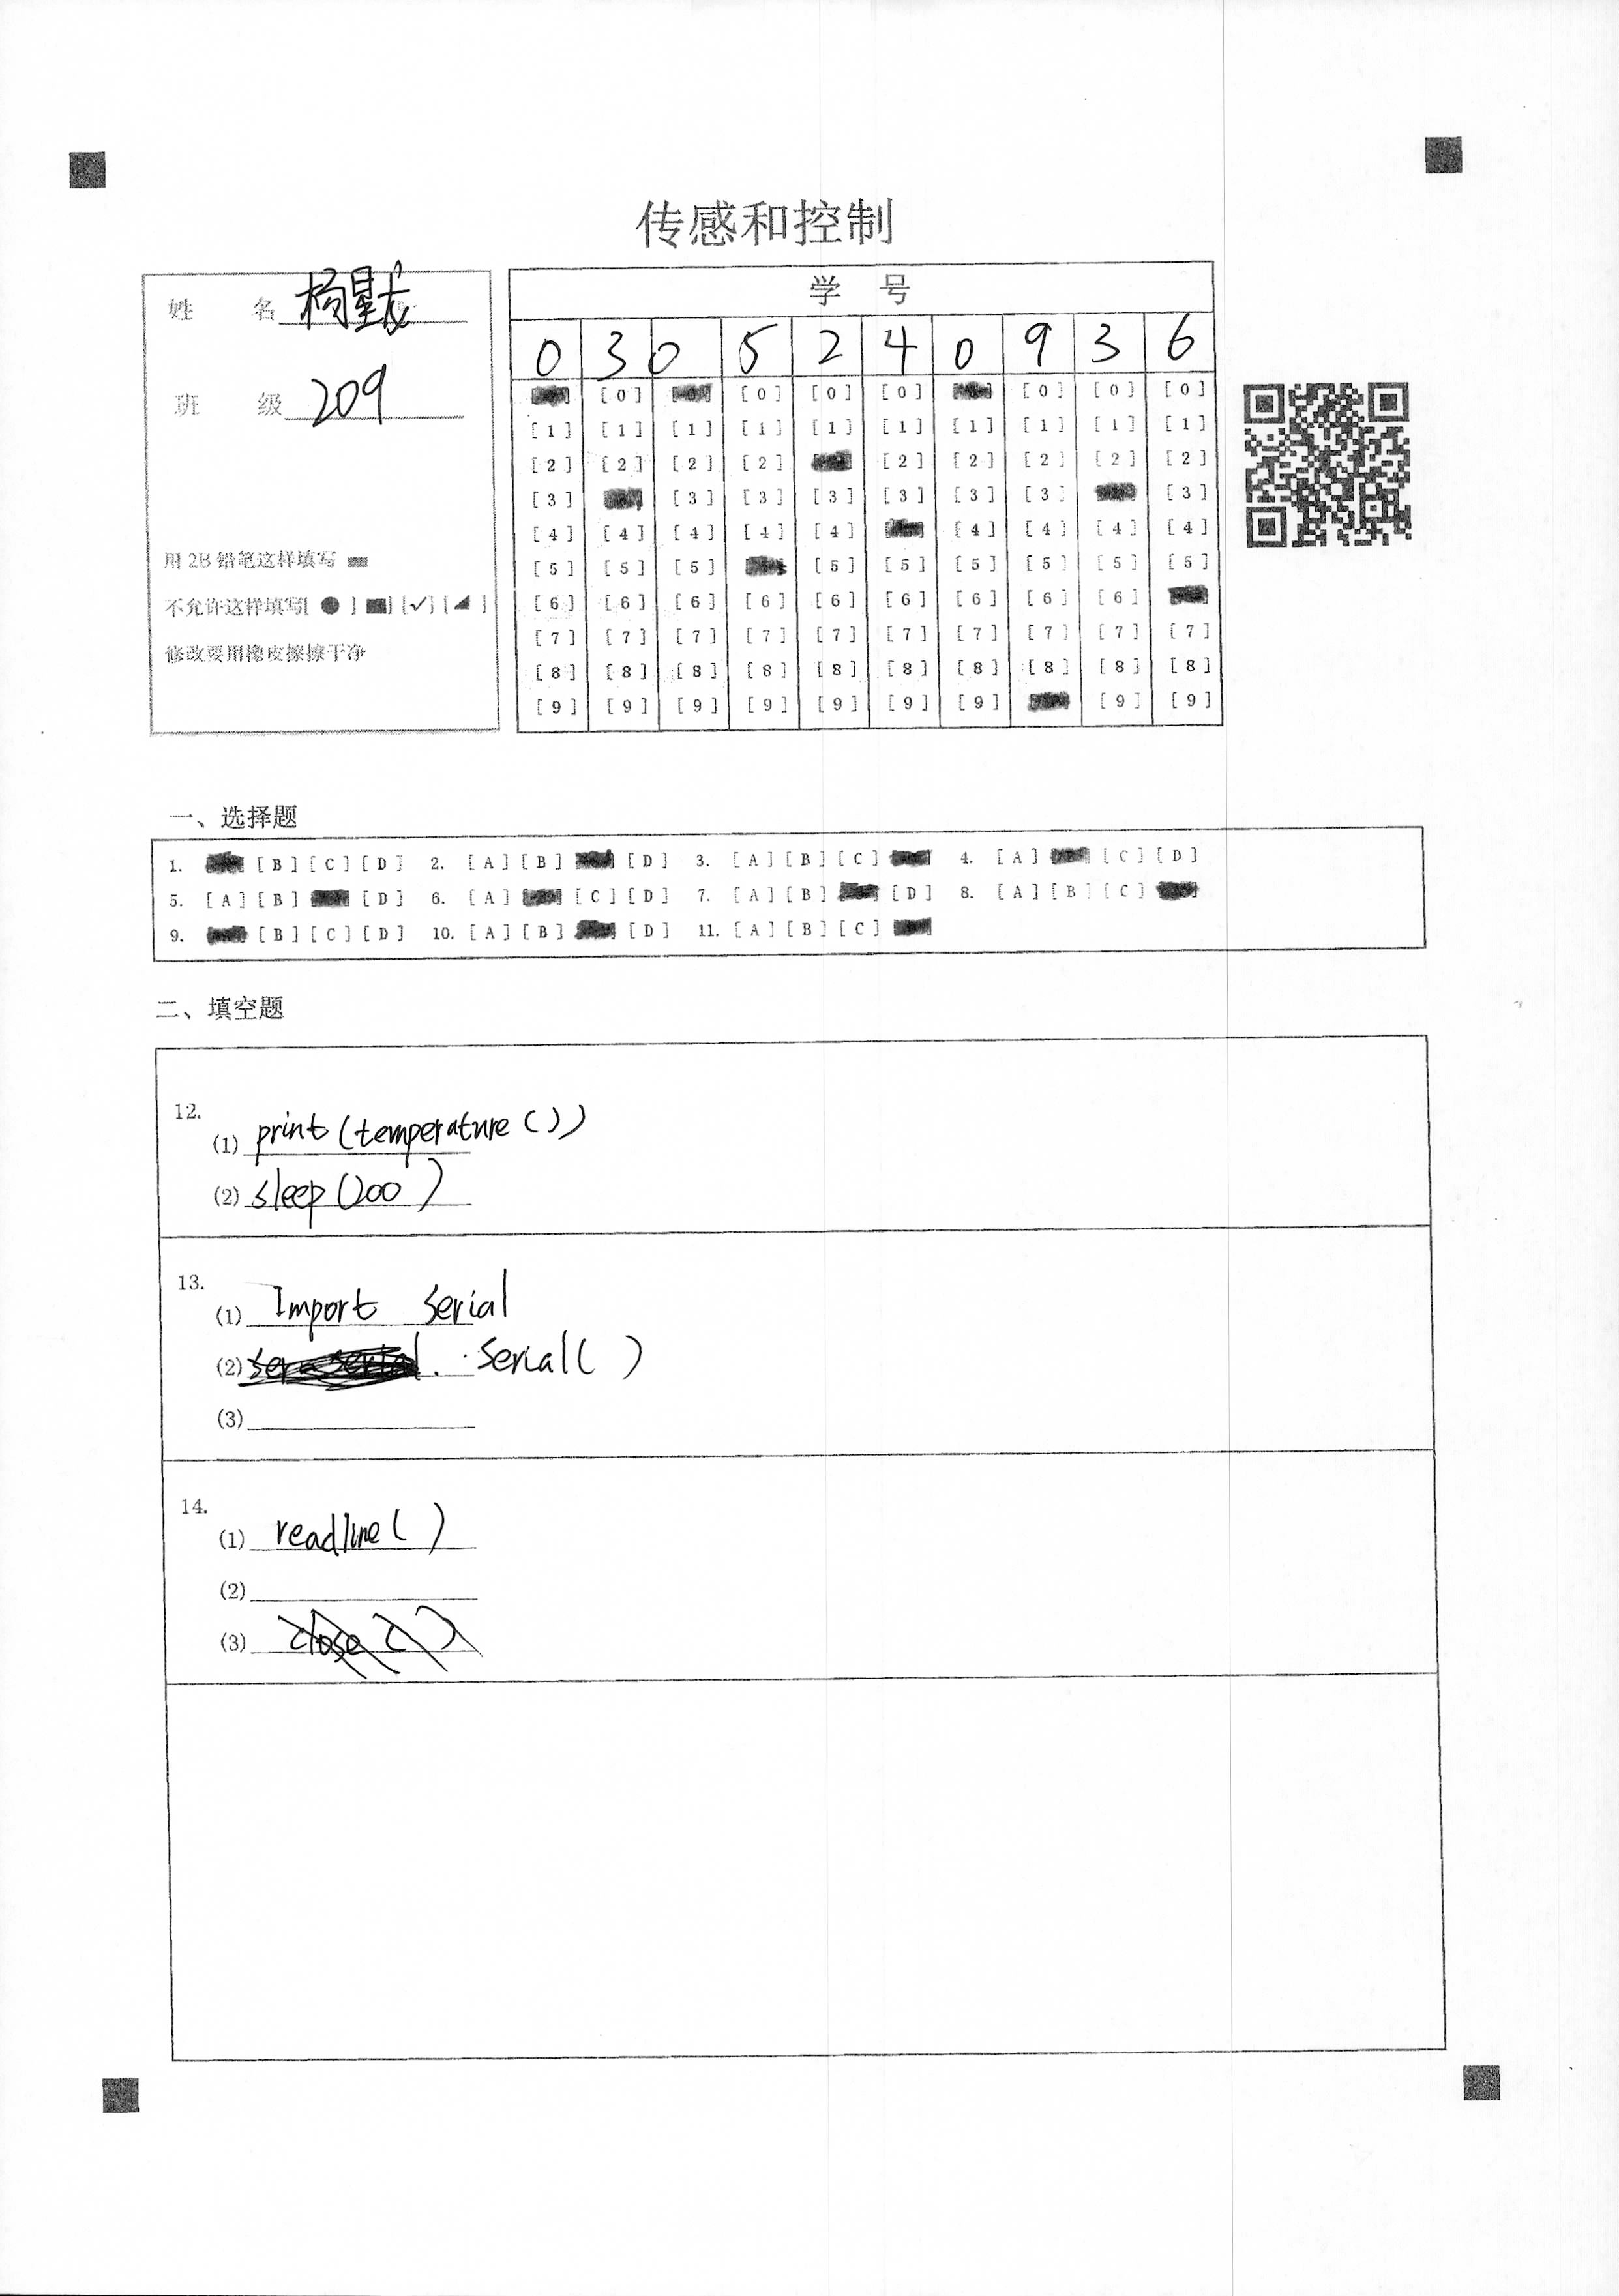 传感和控制
姓 名 杨
班 级 209
用 2B 铅笔这样填写
不允许这样填写[ ● ] [■] [✓] [◢ ]
修改要用橡皮擦擦干净
学 号
0 3 0 5 2 4 0 9 3 6
[0] [0] [0] [0] [0] [0]
[1] [1] [1] [1] [1] [1] [1] [1] [1] [1]
[2] [2] [2] [2] [2] [2] [2] [2] [2]
[3] [3] [3] [3] [3] [3] [3] [3]
[4] [4] [4] [4] [4] [4] [4] [4] [4]
[5] [5] [5] [5] [5] [5] [5] [5] [5]
[6] [6] [6] [6] [6] [6] [6] [6] [6]
[7] [7] [7] [7] [7] [7] [7] [7] [7] [7]
[8] [8] [8] [8] [8] [8] [8] [8] [8] [8]
[9] [9] [9] [9] [9] [9] [9] [9] [9]
一、选择题
1. [B] [C] [D] 2. [A] [B] [D] 3. [A] [B] [C] 4. [A] [C] [D]
5. [A] [B] [D] 6. [A] [C] [D] 7. [A] [B] [D] 8. [A] [B] [C]
9. [B] [C] [D] 10. [A] [B] [D] 11. [A] [B] [C]
二、填空题
12.
(1) print(temperature())
(2) sleep(200)
13.
(1) Import serial
(2) Serial( )
(3)
14.
(1) readline( )
(2)
(3) close( )